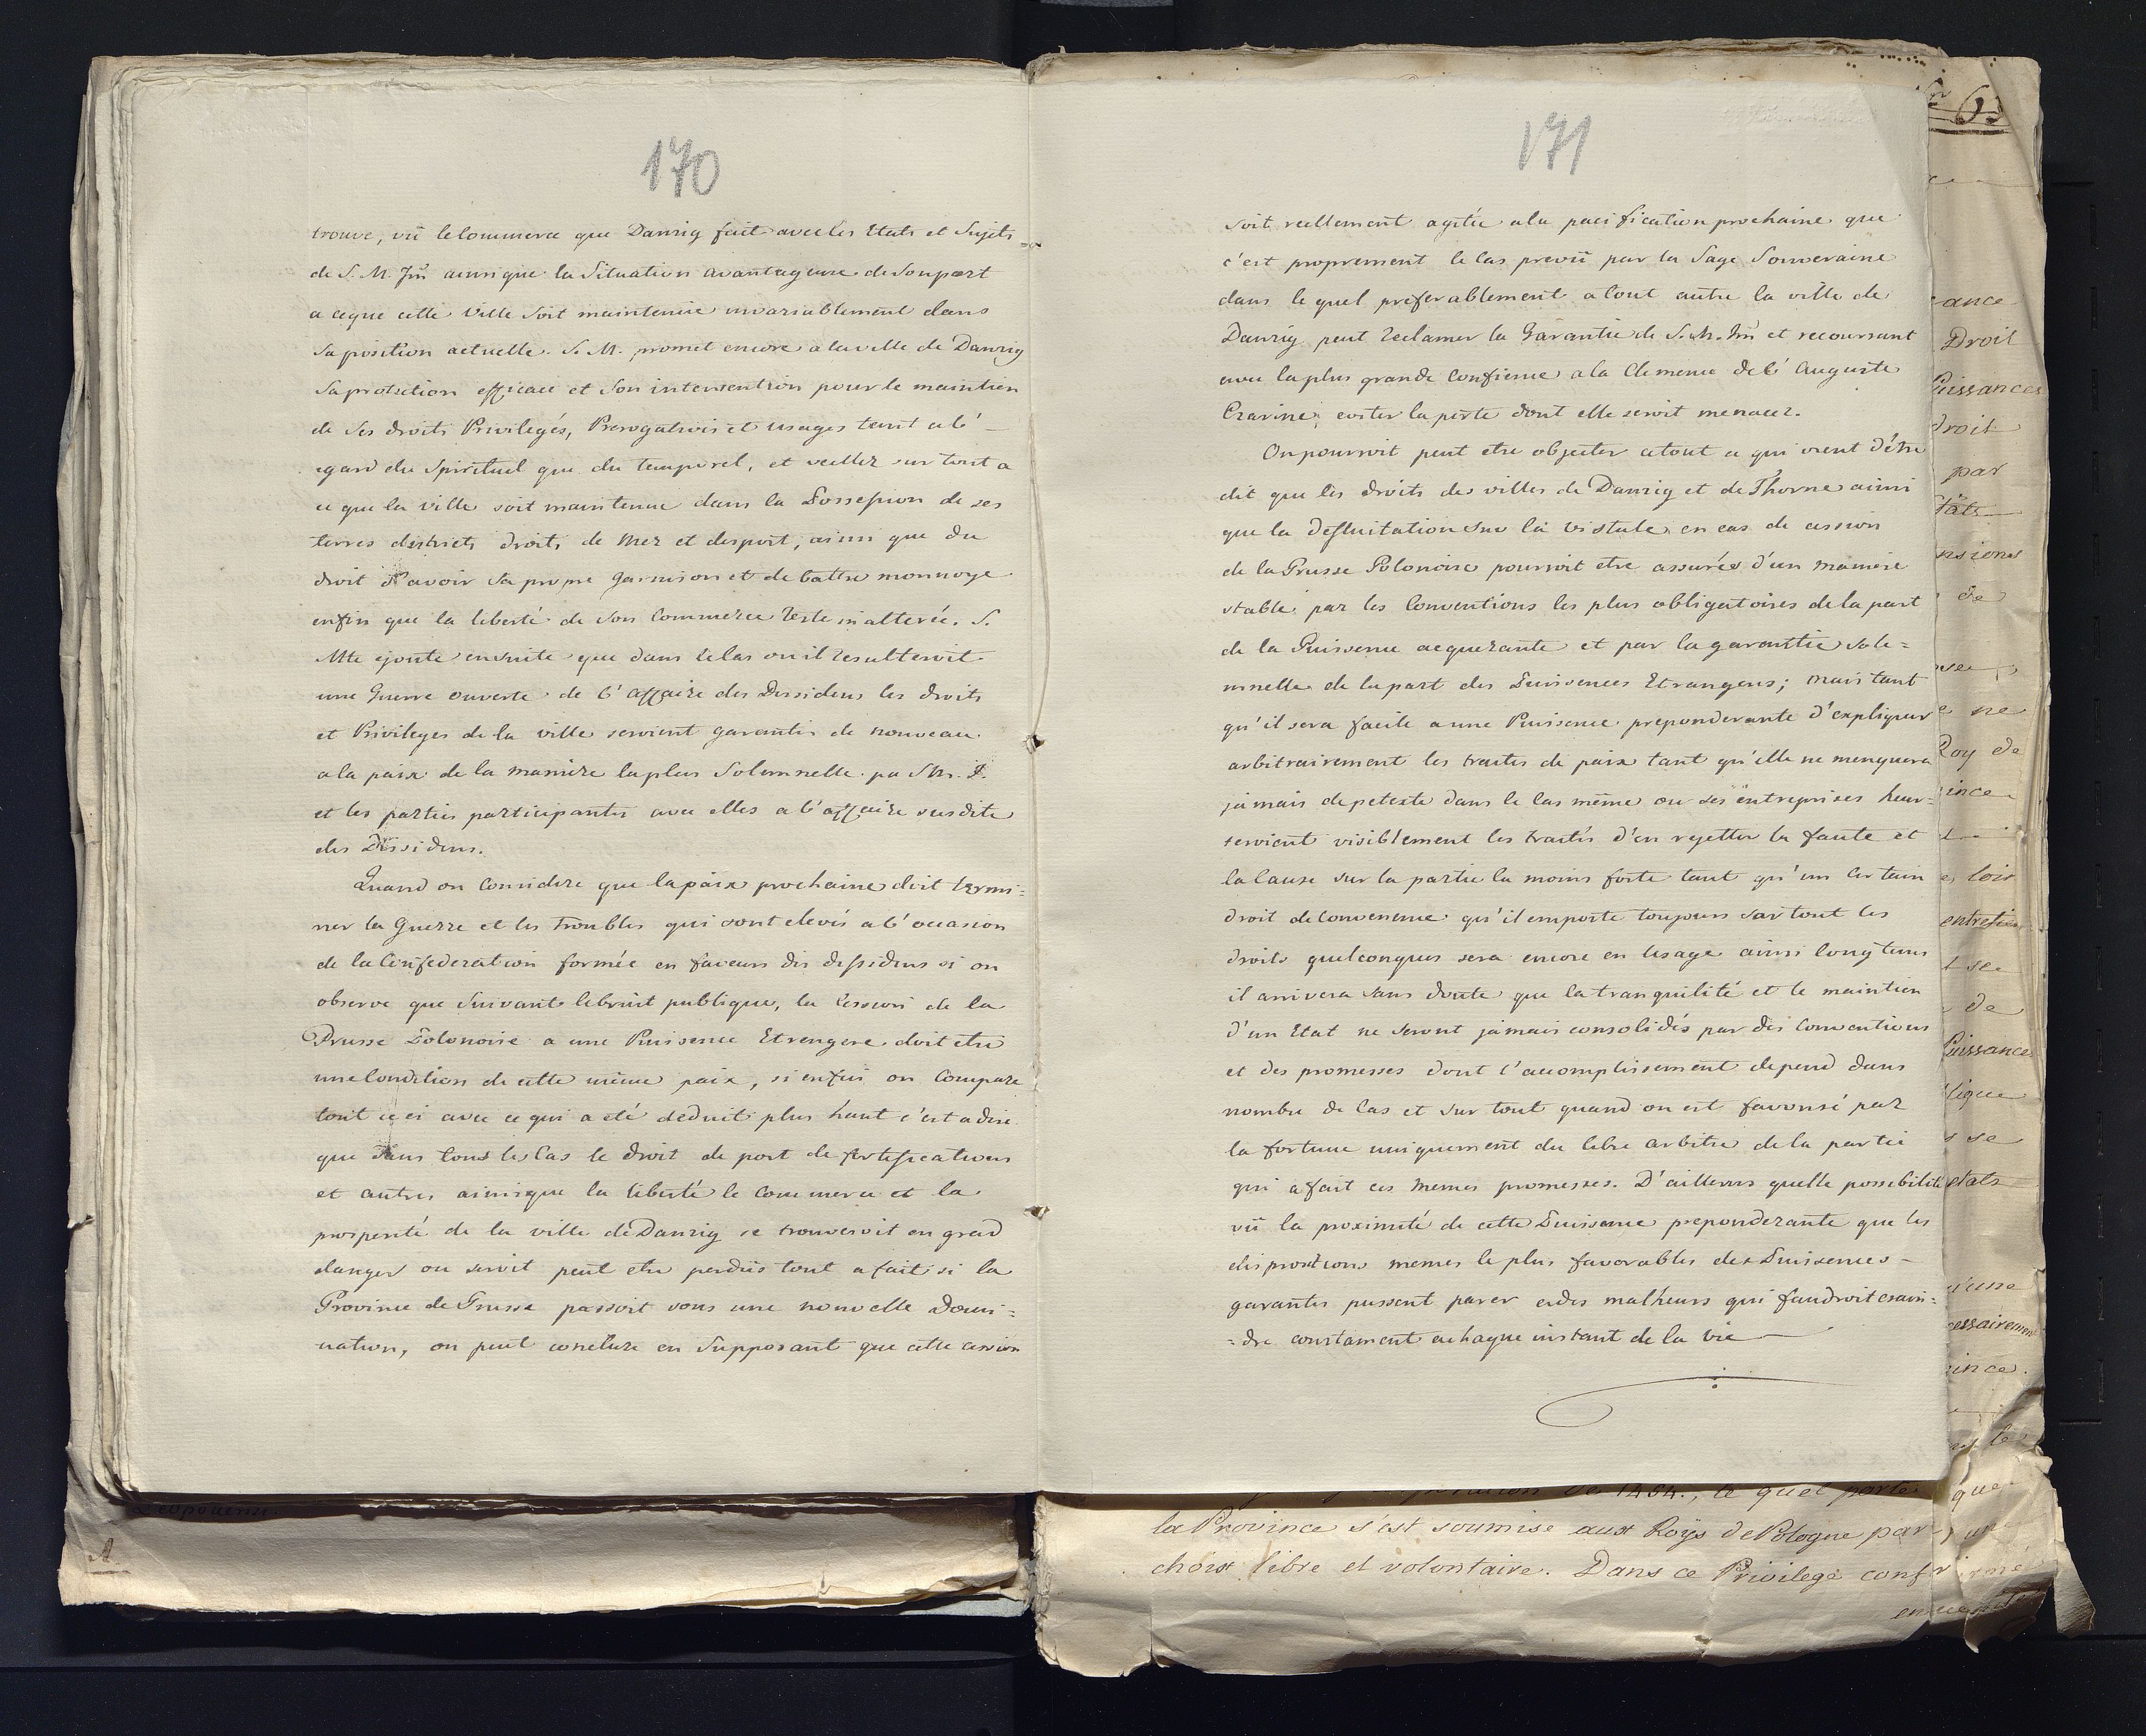 170
trouve, vû le Commerce que Danzig fait avec les Etats et Sujets
de S. M. Im̃ ainsi que la Situation avantageuse de Son port
a ceque cette Ville Soit maintenüe invariablement dans
Sa position actuelle. S. M. promet encore a la ville de Danzig
Sa protection efficace et Son intervention pour le maintien
de Ses droits Privilegés, Prerogatives et usages tant a l'
egard du Spirituel que du temporel, et veiller sur tout a
ce que la ville soit maintenue dans la Possession de ses
terres districts droits de Mer et de port, ainsi que du
droit d'avoir Sa propre Garnison et de battre monnoye
enfin que la liberté de Son Commerce reste inalterée. S.
Mte ajoute ensuite que dans le Cas ou il resulteroit
une Guerre ouverte de l'affaire des Dissidens les droits
et Privileges de la ville seroient garantis de nouveau
a la paix de la maniere la plus Solemnelle pa S M. I.
et les parties participantes avec elles a l'affaire susdite
des Dissidens.
Quand on Considere que la paix prochaine doit termi=
ner la Guerre et les Troubles qui sont elevés a l'occasion
de la Confederation formée en faveurs des dissidens si on
observe que Suivant le bruit publique, la Cession de la
Prusse Polonoise a une Puissence Etrengere doit etre
une Condition de cette même paix, si enfin on Compare
tout ceci avec ce qui a eté deduit plus haut c'est a dire
que dans tous les Cas le droit de port de fortifications
et autres ainsique la liberté le Commerce et la
prosperité de la ville de Danzig se trouveroit en grad
danger ou seroit peut etre perdüs tout a fait si la
Province de Prusse passoit sous une nouvelle Domi=
nation, on peut conclure en Supposant que cette cession
171
soit reellement agitée a la pacification prochaine que
c'est proprement le Cas prevû par la Sage Souveraine
dans le quel preferablement a tout autre la ville de
Danzig peut reclamer la Garantie de S. M. Im̃ et recoursant
avec la plus grande Confience a la Clemence de l'Auguste
Czarine, eviter la perte dont elle seroit menacez.
On pourroit peut etre objecter a tout ce qui vient d'être
dit que les droits des villes de Danzig et de Thorne ainsi
que la defluitation sur la vistule en cas de cession
de la Prusse Polonoise pourroit etre assurés d'un maniere
stable par les Conventions les plus obligatoires de la part
de la Puissence acquerante et par la garantie sole=
mnelle de la part des Puissences Etrangeres; mais tant
qu'il sera facile a une Puissence preponderante d'expliquer
arbitrairement les traités de paix tant qu'elle ne menquera
jamais de petexte dans le Cas même ou ses entreprises heur=
teroient visiblement les traités d'en rejetter la faute et
la Cause sur la partie la moins forte tant qu'un Certain
droit de Convenence qu'il emporte toujours sur tout les
droits quelconques sera encore en usage aussi longtems
il arrivera sans doute que la tranquilité et le maintien
d'un Etat ne seront jamais consolidés par des Conventions
et des promesses dont l'accomplissement depend dans
nombre de Cas et sur tout quand on est favorisé par
la fortune uniquement du libre arbitre de la partie
qui a fait ces memes promesses. D'ailleurs quelle possibilité
vû la proximité de cette Puissence preponderante que les
dispositions memes le plus favorables des Puissences
garantes pussent parer ces malheurs qui faudroit crain=
=dre constament a chaque instant de la vie
ance
Droit
Puissances
droit
par
de
ne
Roy de
ince
loix
entretien
se
de
Puissance
se
etats
ince
que
1454., le quel porte
la Province s'est soumise aux Roÿs de Pologne par
choix libre et volontaire. Dans ce Privilege conf